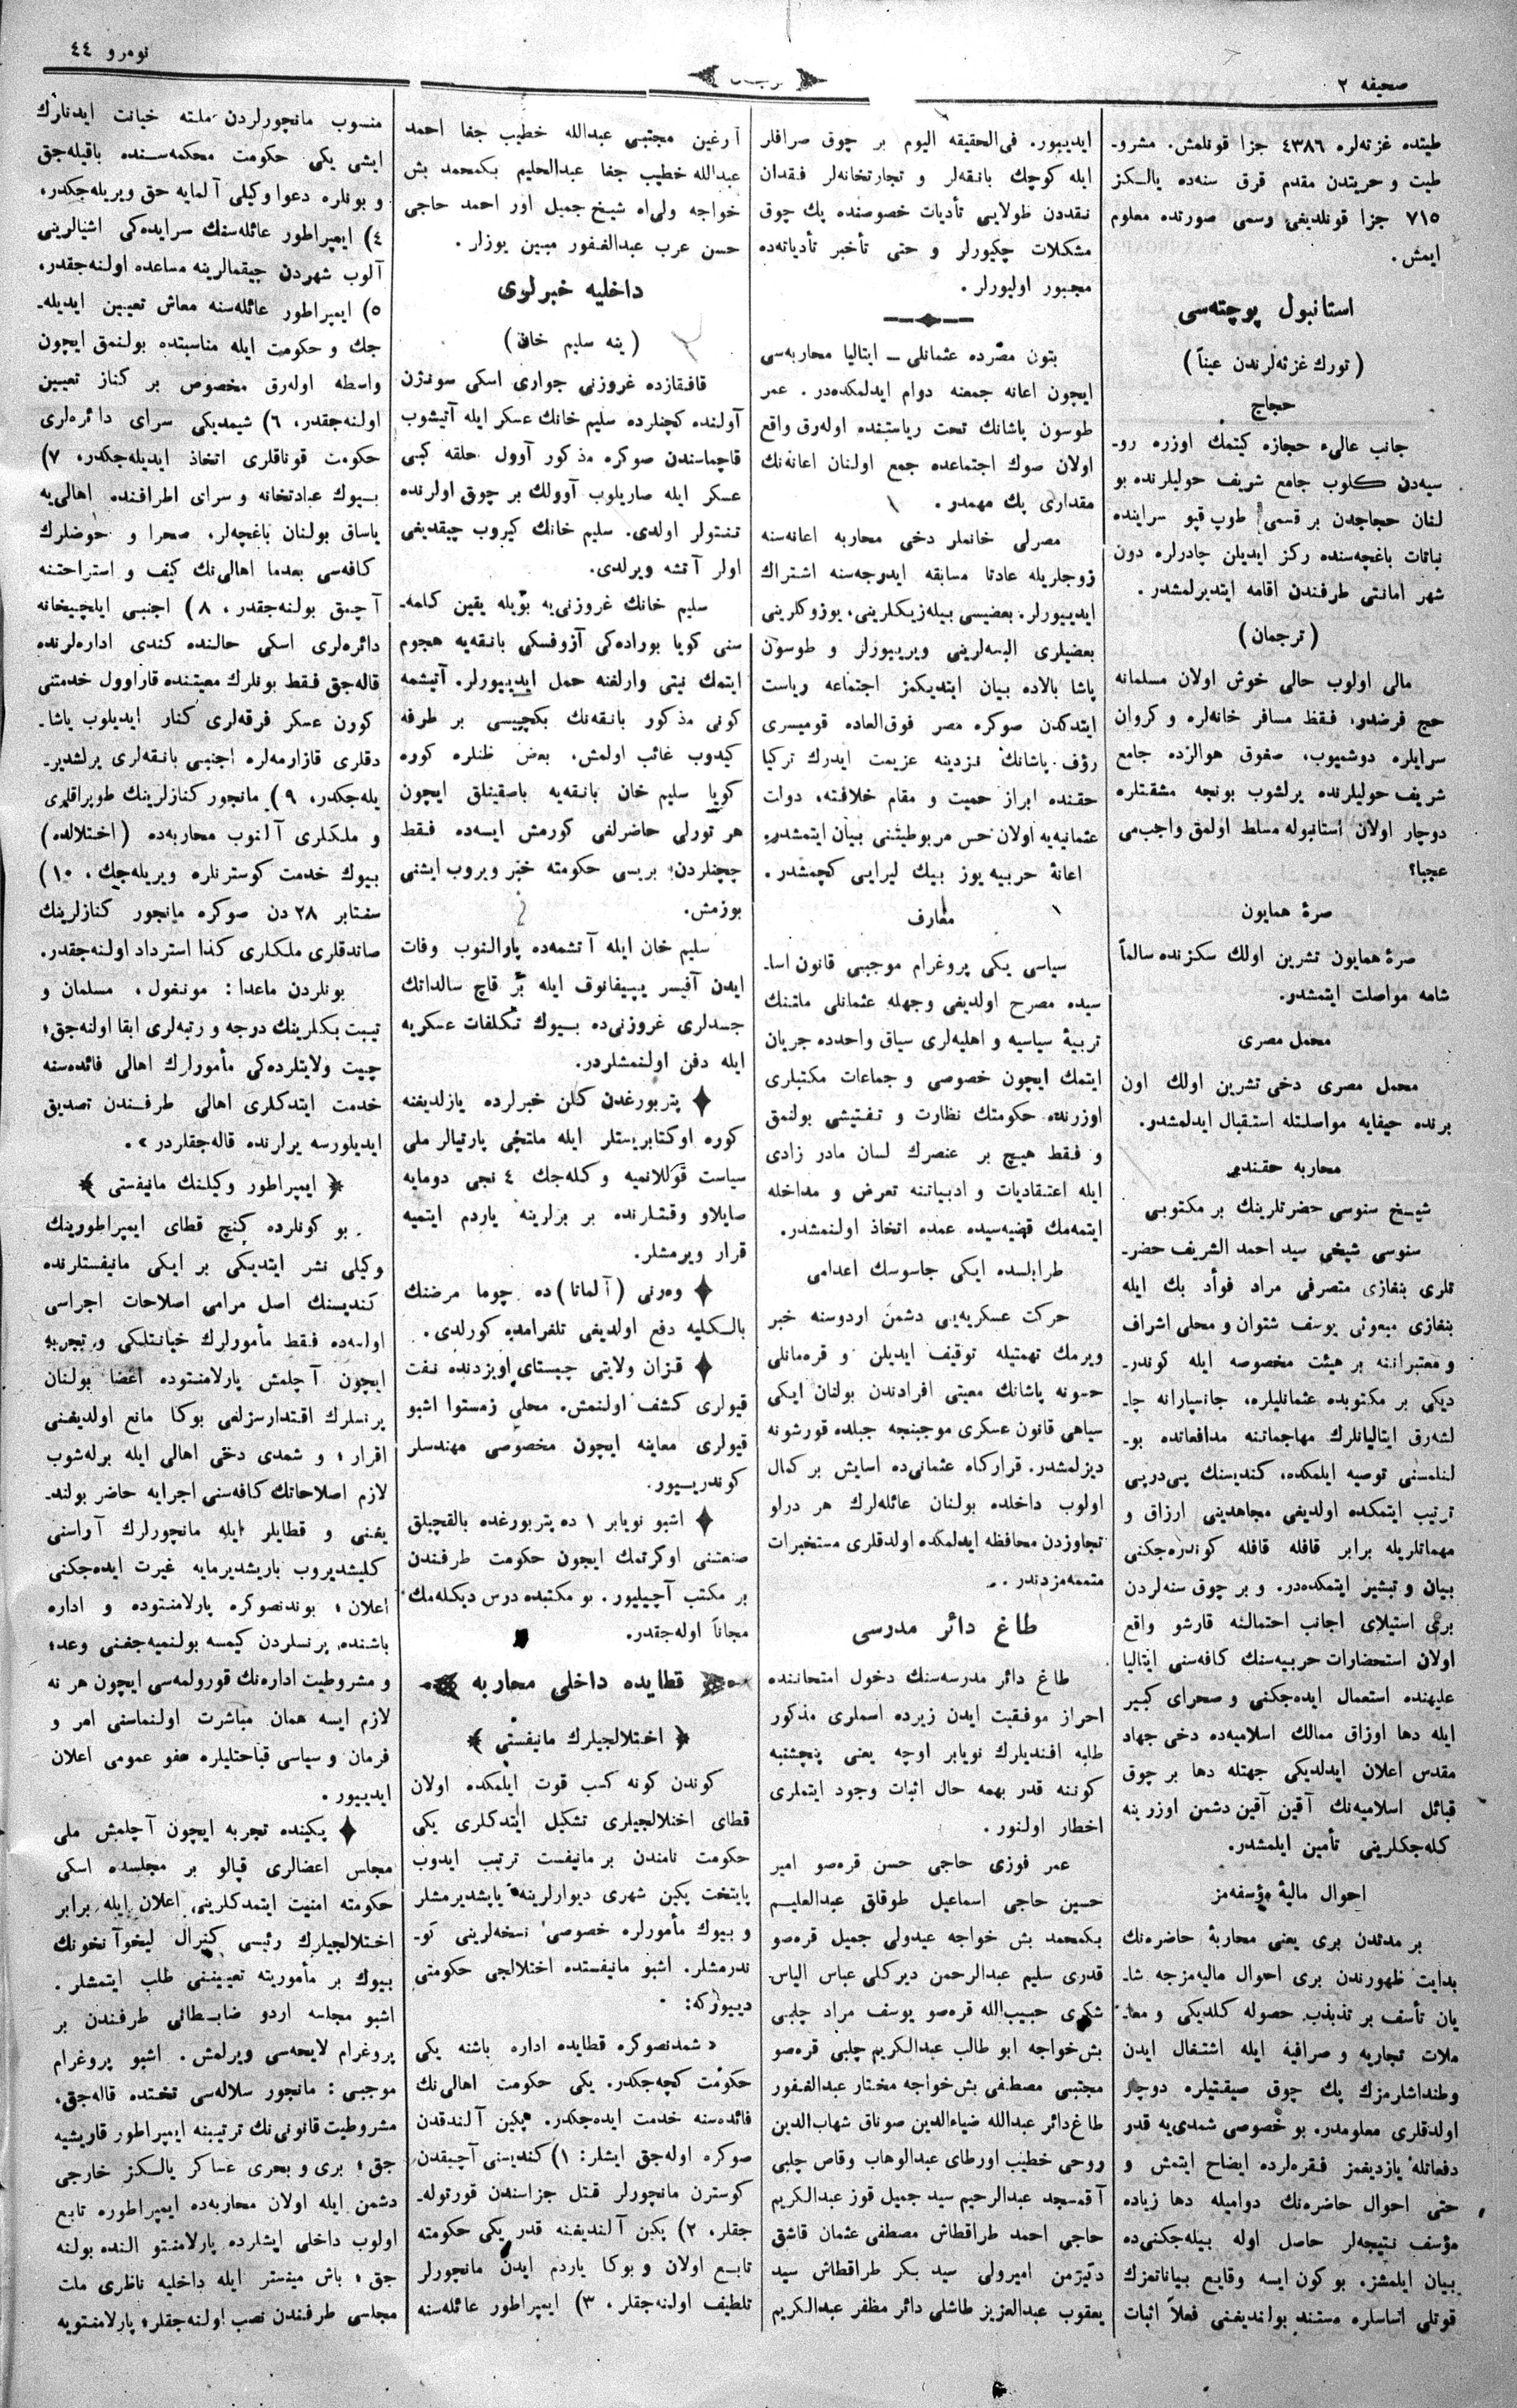 صحیفه ٢
ترجمان
نومرو ٤٤
طیتده غزته‌لره ٤٣٨٦ جزا قونلمش. مشرو-
طیت و حریتدن مقدم قرق سنه‌ده یالـکز
٧١٥ جزا قونلدیغی رسمی صورتده معلوم
ایمش.
استانبول پوچته‌سی
(تورك غزته‌لرندن عیناً)
حجاج
جانب عالیء حجازه کیتمك اوزره رو-
سیه‌دن کلوب جامع شریف حولیلرنده بو
لنان حجاجدن بر قسمی طوپ قپو سراینده
نباتات باغچه‌سنده رکز ایدیلن چادرلره دون
شهر امانتی طرفندن اقامه ایتدیرلمشدر.
(ترجمان)
مالی اولوب حالی خوش اولان مسلمانه
حج فرضدر، فقط مسافر خانه‌لره و کروان
سرایلره دوشمیوب، صغوق هوالرده جامع
شریف حولیلرنده یرلشوب بونجه مشقتلره
دوچار اولان استانبوله مسلط اولمق واجب‌می
عجبا؟
صرۀ همایون
صرۀ همایون تشرین اولك سکزنده سالماً
شامه مواصلت ایتمشدر.
محمل مصری
محمل مصری دخی تشرین اولك اون
برنده حیفایه مواصلتله استقبال ایدلمشدر.
محاربه حقنده
شیـخ سنوسی حضرتلرینك بر مکتوبی
سنوسی شیخی سید احمد الشریف حضر-
تلری بنغازی متصرفی مراد فوأد بك ایله
بنغازی مبعوثی یوسف شتوان و محلی اشراف
و معتبراننه بر هیئت مخصوصه ایله کوندر-
دیکی بر مکتوبده عثمانلیلره، جانسپارانه چا-
لشه‌رق ایتالیانلرك مهاجماتنه مدافعاتده بو-
لنلمسنی توصیه ایلمکده، کندیسنك پی‌درپی
ترتیب ایتمکده اولدیغی مجاهدینی ارزاق و
مهماتلریله برابر قافله قافله کوندره‌جکنی
بیان و تبشیر ایتمکده‌در. و بر چوق سنه‌لردن
بری استیلای اجانب احتمالنه قارشو واقع
اولان استحضارات حربیه‌سنك کافه‌سنی ایتالیا
علیهنده استعمال ایده‌جکنی و صحرای کبیر
ایله دها اوزاق ممالك اسلامیه‌ده دخی جهاد
مقدس اعلان ایدلدیکی جهتله دها بر چوق
قبائل اسلامیه‌نك آقین آقین دشمن اوزرینه
کله‌جکلرینی تأمین ایلمشدر.
احوال مالیۀ مؤسفه‌مز
بر مدتدن بری یعنی محاربۀ حاضره‌نك
بدایت ظهورندن بری احوال مالیه‌مزجه شا-
یان تأسف بر تذبذب حصوله کلدیکی و معا-
ملات تجاریه و صرافیه ایله اشتغال ایدن
وطنداشلرمزك پك چوق صیقنتیلره دوچار
اولدقلری معلومدر. بو خصوصی شمدی‌یه قدر
دفعاتله یازدیغمز فقره‌لرده ایضاح ایتمش و
حتی احوال حاضره‌نك دوامیله دها زیاده
مؤسف نتیجه‌لر حاصل اوله بیله‌جکنی‌ده
بیان ایلمشز. بو کون ایسه وقایع بیاناتمزك
قوتلی اساسلره مستند بولندیغنی فعلاً اثبات
ایدییور. فی‌الحقیقه الیوم بر چوق صرافلر
ایله کوچك بانقه‌لر و تجارتخانه‌لر فقدان
نقددن طولایی تأدیات خصوصنده پك چوق
مشکلات چکیورلر و حتی تأخیر تأدیاته‌ده
مجبور اولیورلر.
بتون مصرده عثمانلی - ایتالیا محاربه‌سی
ایچون اعانه جمعنه دوام ایدلمکده‌در. عمر
طوسون پاشانك تحت ریاستنده اوله‌رق واقع
اولان صوك اجتماعده جمع اولنان اعانه‌نك
مقداری پك مهمدر.
مصرلی خانملر دخی محاربه اعانه‌سنه
زوجلریله عادتا مسابقه ایدرجه‌سنه اشتراك
ایدییورلر. بعضیسی بیله‌زیکلرینی، یوزوکلرینی
بعضیلری البسه‌لرینی ویرییورلر و طوسون
پاشا بالاده بیان ایتدیکمز اجتماعه ریاست
ایتدکدن صوکره مصر فوق‌العاده قومیسری
رؤف پاشانك نزدینه عزیمت ایدرك ترکیا
حقنده ابراز حمیت و مقام خلافته، دولت
عثمانیه‌یه اولان حس مربوطیتنی بیان ایتمشدر.
اعانۀ حربیه یوز بیك لیرایی کچمشدر.
معارف
سیاسی یکی پروغرام موجبی قانون اسا-
سیده مصرح اولدیغی وجهله عثمانلی ملتنك
تربیۀ سیاسیه و اهلیه‌لری سیاق واحدده جریان
ایتمك ایچون خصوصی و جماعات مکتبلری
اوزرنده حکومتك نظارت و تفتیشی بولنمق
و فقط هیچ بر عنصرك لسان مادر زادی
ایله اعتقادیات و ادبیاتنه تعرض و مداخله
ایتمه‌مك قضیه‌سیده عمده اتخاذ اولنمشدر.
طرابلسده ایکی جاسوسك اعدامی
حرکت عسکریه‌یی دشمن اردوسنه خبر
ویرمك تهمتیله توقیف ایدیلن و قره‌مانلی
حسونه پاشانك معیتی افرادندن بولنان ایکی
سیاهی قانون عسکری موجبنجه جبلده قورشونه
دیزلمشدر. قرارکاه عثمانی‌ده اسایش بر کمال
اولوب داخلده بولنان عائله‌لرك هر درلو
تجاوزدن محافظه ایدلمکده اولدقلری مستخبرات
متممه‌مزدندر.
طاغ دائر مدرسی
طاغ دائر مدرسه‌سنك دخول امتحاننده
احراز موفقیت ایدن زیرده اسملری مذکور
طلبه افندیلرك نویابر اوچه یعنی پنچشنبه
کوننه قدر بهمه حال اثبات وجود ایتملری
اخطار اولنور.
عمر فوزی حاجی حسن قره‌صو امیر
حسین حاجی اسماعیل طوقلق عبدالعلیم
بکمحمد بش خواجه عیدولی جمیل قره‌صو
قدری سلیم عبدالرحمن دیرکلی عباس الیاس
شکری حبیب‌الله قره‌صو یوسف مراد چلبی
بش‌خواجه ابو طالب عبدالکریم چلبی قره‌صو
مجتبی مصطفی بش‌خواجه مختار عبدالغفور
طاغ‌دائر عبدالله ضیاءالدین صوناق شهاب‌الدین
روحی خطیب اورطای عبدالوهاب وقاص چلبی
آقمسجد عبدالرحیم سید جمیل قوز عبدالکریم
حاجی احمد طراقطاش مصطفی عثمان قاشق
دکیرمن امیرولی سید بکر طراقطاش سید
یعقوب عبدالعزیز طاشلی دائر مظفر عبدالکریم
آرغین مجتبی عبدالله خطیب جغا احمد
عبدالله خطیب جغا عبدالحلیم بکمحمد بش
خواجه ولی‌اه شیخ جمیل اور احمد حاجی
حسن عرب عبدالغفور مبین یوزلر.
داخلیه خبرلری
(ینه سلیم خان)
قافقازده غروزنی جواری اسکی سونژن
آولنده کچنلرده سلیم خانك عسکر ایله آتیشوب
قاچماسندن صوکره مذکور آوول حلقه کبی
عسکر ایله صاریلوب آوولك بر چوق اولرنده
تنتولر اولدی. سلیم خانك کیروب چیقدیغی
اولر آتشه ویرلدی.
سلیم خانك غروزنی‌یه بویله یقین کلمه-
سنی کویا بوراده‌کی آزوفسکی بانقه‌یه هجوم
ایتمك نیتی وارلغنه حمل ایدییورلر. آتیشمه
کونی مذکور بانقه‌نك بکچیسی بر طرفه
کیدوب غائب اولمش. بعض ظنلره کوره
کویا سلیم خان بانقه‌یه باصقینلق ایچون
هر تورلی حاضرلغی کورمش ایسه‌ده فقط
چچنلردن بریسی حکومته خبر ویروب ایشنی
بوزمش.
سلیم خان ایله آتشمه‌ده یارالنوب وفات
ایدن آفیسر یپیفانوف ایله بر قاچ سالداتك
جسدلری غروزنی‌ده بیوك تکلفات عسکریه
ایله دفن اولنمشلردر.
✦ پتربورغدن کلن خبرلرده یازلدیغنه
کوره اوکتابریستلر ایله ملتچی پارتیالر ملی
سیاست قوللانمیه و کله‌جك ٤ نجی دومایه
صایلاو وقتلرنده بر برلرینه یاردم ایتمیه
قرار ویرمشلر.
✦ وه‌رنی (آلماتا)ده چوما مرضنك
بالکلیه دفع اولدیغی تلغرامده کورلدی.
✦ قزان ولایتی چیستای اویزدنده نفت
قیولری کشف اولنمش. محلی زمستوا اشبو
قیولری معاینه ایچون مخصوصی مهندسلر
کوندرییور.
✦ اشبو نویابر ١ ده پتربورغده بالقچیلق
صنعتنی اوکرتمك ایچون حکومت طرفندن
بر مکتب آچیلیور. بو مکتبده درس دیکله‌مك
مجاناً اوله‌جقدر.
قطایده داخلی محاربه
﴿ اختلالجیلرك مانیفستی ﴾
کوندن کونه کسب قوت ایلمکده اولان
قطای اختلالجیلری تشکیل ایتدکلری یکی
حکومت نامندن بر مانیفست ترتیب ایدوب
پایتخت پکین شهری دیوارلرینه یاپشدیرمشلر
و بیوك مأمورلره خصوصی نسخه‌لرینی کو-
ندرمشلر. اشبو مانیفستده اختلالجی حکومتی
دیییورکه:
« شمدنصوکره قطایده اداره باشنه یکی
حکومت کچه‌جکدر. یکی حکومت اهالی‌نك
فائده‌سنه خدمت ایده‌جکدر. پکین آلندقدن
صوکره اوله‌جق ایشلر: ١) کندیسنی آچیقدن
کوسترن مانچورلر قتل جزاسندن قورتوله-
جقلر، ٢) پکین آلندیغنه قدر یکی حکومته
تابع اولان و بوکا یاردم ایدن مانچورلر
تلطیف اولنه‌جقلر، ٣) ایمپراطور عائله‌سنه
منسوب مانچورلردن ملته خیانت ایدنلرك
ایشی یکی حکومت محکمه‌سنده باقیله‌جق
و بونلره دعوا وکیلی آلمایه حق ویریله‌جکدر،
٤) ایمپراطور عائله‌سنك سرایده‌کی اشیالرینی
آلوب شهردن چیقمالرینه مساعده اولنه‌جقدر،
٥) ایمپراطور عائله‌سنه معاش تعیین ایدیله-
جك و حکومت ایله مناسبتده بولنمق ایچون
واسطه اوله‌رق مخصوص بر کناز تعیین
اولنه‌جقدر، ٦) شیمدیکی سرای دائره‌لری
حکومت قوناقلری اتخاذ ایدیله‌جکدر، ٧)
بیوك عبادتخانه و سرای اطرافنده اهالی‌یه
یاساق بولنان باغچه‌لر، صحرا و حوضلرك
کافه‌سی بعدما اهالی‌نك کیف و استراحتنه
آچیق بولنه‌جقدر، ٨) اجنبی ایلچیخانه
دائره‌لری اسکی حالنده کندی اداره‌لرنده
قاله‌جق فقط بونلرك معیتنده قاراوول خدمتنی
کورن عسکر فرقه‌لری کنار ایدیلوب یاشا-
دقلری قازارمه‌لره اجنبی بانقه‌لری یرلشدیر-
یله‌جکدر، ٩) مانچور کنازلرینك طوپراقلری
و ملکلری آلنوب محاربه‌ده (اختلالده)
بیوك خدمت کوسترنلره ویریله‌جك، ١٠)
سنتابر ٢٨ دن صوکره مانچور کنازلرینك
صاتدقلری ملکلری کذا استرداد اولنه‌جقدر.
بونلردن ماعدا: مونغول، مسلمان و
تیبت بکلرینك درجه و رتبه‌لری ابقا اولنه‌جق؛
چیت ولایتلرده‌کی مأمورلرك اهالی فائده‌سنه
خدمت ایتدکلری اهالی طرفندن تصدیق
ایدیلورسه یرلرنده قاله‌جقلردر ».
﴿ ایمپراطور وکیلنك مانیفستی ﴾
بو کونلرده کنچ قطای ایمپراطورینك
وکیلی نشر ایتدیکی بر ایکی مانیفستلرنده
کندیسنك اصل مرامی اصلاحات اجراسی
اولسه‌ده فقط مأمورلرك خیانتلکی و تجربه
ایچون آچلمش پارلامنتوده اعضا بولنان
پرنسلرك اقتدارسزلغی بوکا مانع اولدیغنی
اقرار؛ و شمدی دخی اهالی ایله برله‌شوب
لازم اصلاحاتك کافه‌سنی اجرایه حاضر بولند-
یغنی و قطایلر ایله مانچورلرك آراسنی
کلیشدیروب باریشدیرمایه غیرت ایده‌جکنی
اعلان؛ بوندنصوکره پارلامنتوده و اداره
باشنده پرنسلردن کیمسه بولنمیه‌جغنی وعد؛
و مشروطیت اداره‌نك قورولمه‌سی ایچون هر نه
لازم ایسه همان مباشرت اولنماسنی امر و
فرمان و سیاسی قباحتلیلره عفو عمومی اعلان
ایدییور.
✦ پکینده تجربه ایچون آچلمش ملی
مجلس اعضالری قپالو بر مجلسده اسکی
حکومته امنیت ایتمدکلرینی اعلان ایله برابر
اختلالجیلرك رئیسی کنرال لیخوآنخونك
بیوك بر مأموریته تعییننی طلب ایتمشلر.
اشبو مجلسه اردو ضابطانی طرفندن بر
پروغرام لایحه‌سی ویرلمش. اشبو پروغرام
موجبی: مانچور سلاله‌سی تختده قاله‌جق،
مشروطیت قانونی‌نك ترتیبنه ایمپراطور قاریشمیه
جق؛ بری و بحری عساکر یالکز خارجی
دشمن ایله اولان محاربه‌ده ایمپراطوره تابع
اولوب داخلی ایشلرده پارلامنتو النده بولنه
جق؛ باش مینستر ایله داخلیه ناظری ملت
مجلسی طرفندن نصب اولنه‌جقلر؛ پارلامنتویه